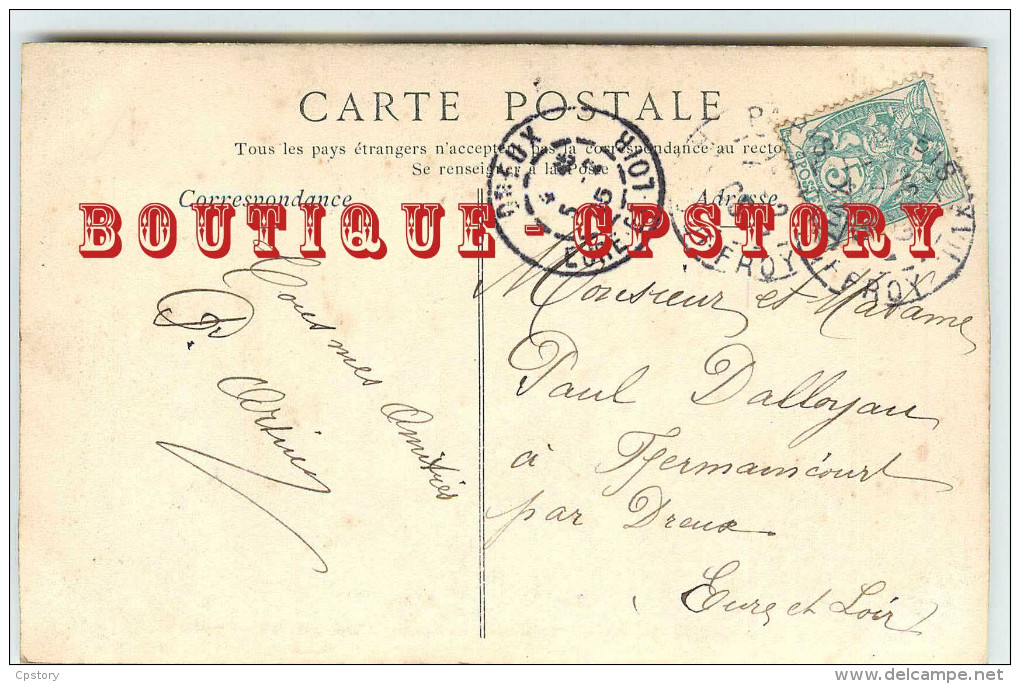 CARTE POSTALE
Tous les pays étrangers n'acceptent pas la correspondance au recto
Se renseigner à la Poste
Correspondance
Adresse
BOUTIQUE - CPSTORY
DREUX
EURE-ET-LOIR
Tous mes amitiés
Monsieur et Madame
Paul Dalloyau
à Fermaincourt
par Dreux
Eure et Loir
Cpstory
delcampe.net